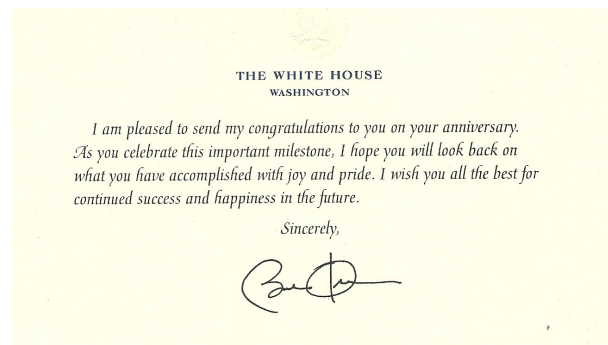 THE WHITE HOUSE
WASHINGTON
I am pleased to send my congratulations to you on your anniversary.
As you celebrate this important milestone, I hope you will look back on
what you have accomplished with joy and pride. I wish you all the best for
continued success and happiness in the future.
Sincerely,